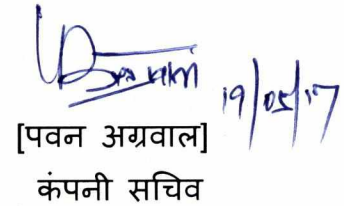 19/05/17
[पवन अग्रवाल]
कंपनी सचिव